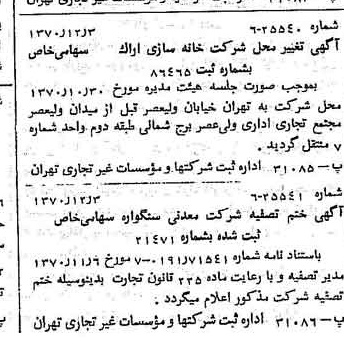 شماره ۲۵۵۴۰-۶ ۱۳۷۰/۱۲/۳
آگهی تغییر محل شرکت خانه سازی اراک سهامی‌خاص
بشماره ثبت ۸۶۴۶۵
بموجب صورت جلسه هیئت مدیره مورخ ۱۳۷۰/۱۰/۳۰
محل شرکت به تهران خیابان ولیعصر قبل از میدان ولیعصر
مجتمع تجاری اداری ولی‌عصر برج شمالی طبقه دوم واحد شماره
۷ منتقل گردید .
پ – ۳۱۰۸۵ اداره ثبت شرکتها و مؤسسات غیر تجاری تهران
شماره ۲۵۵۴۱-۶ ۱۳۷۰/۱۲/۳
آگهی ختم تصفیه شرکت معدنی سنگواره سهامی‌خاص
ثبت شده بشماره ۲۱۴۷۱
باستناد نامه شماره ۷-۰۱۹۱/۷۱۵۴۱ مورخ ۱۳۷۰/۱۱/۶
مدیر تصفیه و با رعایت ماده ۲۲۵ قانون تجارت بدینوسیله ختم
تصفیه شرکت مذکور اعلام میگردد .
پ – ۳۱۰۸۶ اداره ثبت شرکتها و مؤسسات غیر تجاری تهران